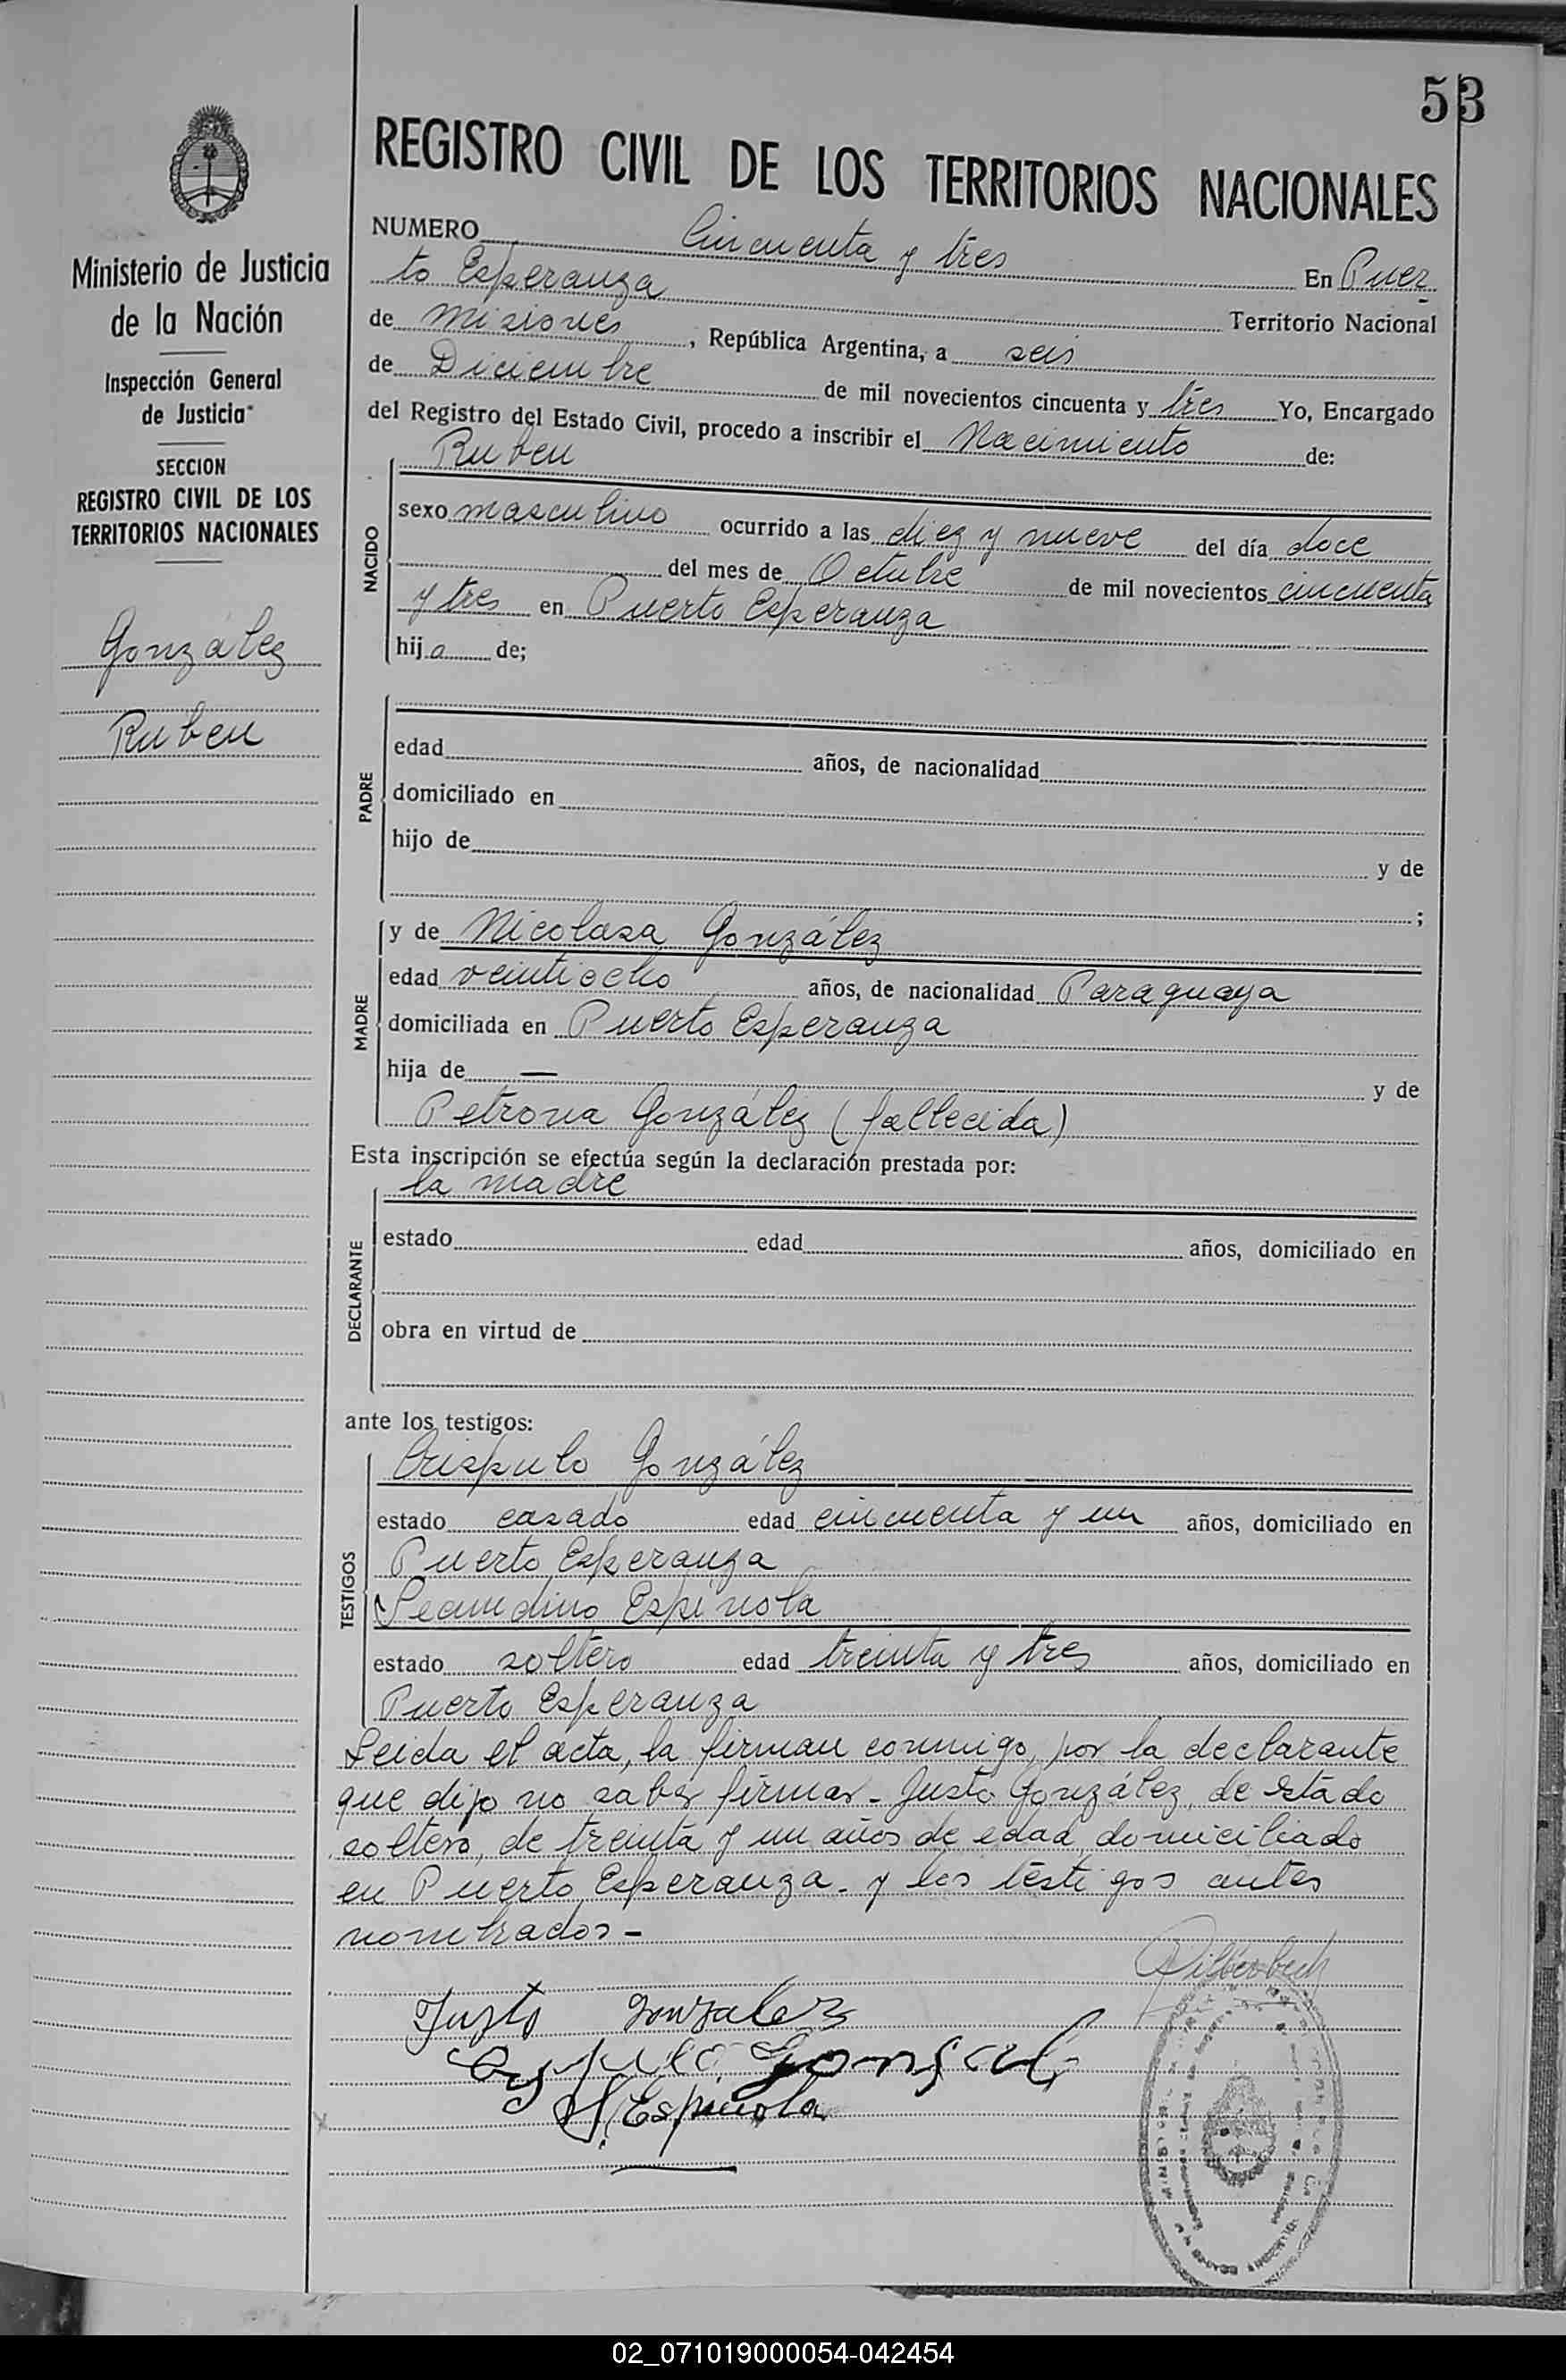 53
REGISTRO CIVIL DE LOS TERRITORIOS NACIONALES
Ministerio de Justicia
de la Nación
Inspección General
de Justicia
SECCION
REGISTRO CIVIL DE LOS
TERRITORIOS NACIONALES
González
Ruben
NUMERO Cincuenta y tres En Puer
to Esperanza Territorio Nacional
de Misiones, República Argentina, a seis
de Diciembre de mil novecientos cincuenta y tres Yo, Encargado
del Registro del Estado Civil, procedo a inscribir el Nacimiento de:
NACIDO
Ruben
sexo masculino ocurrido a las diez y nueve del día doce
del mes de Octubre de mil novecientos cincuenta
y tres en Puerto Esperanza
hijo de;
PADRE
edad años, de nacionalidad
domiciliado en
hijo de y de
;
MADRE
y de Nicolasa González
edad veintiocho años, de nacionalidad Paraguaya
domiciliada en Puerto Esperanza
hija de — y de
Petrona González (fallecida)
Esta inscripción se efectúa según la declaración prestada por:
DECLARANTE
la madre
estado edad años, domiciliado en
obra en virtud de
ante los testigos:
TESTIGOS
Crispulo González
estado casado edad cincuenta y un años, domiciliado en
Puerto Esperanza
Secundino Espínola
estado soltero edad treinta y tres años, domiciliado en
Puerto Esperanza
Leida el acta, la firman conmigo, por la declarante
que dijo no saber firmar - Justo González, de estado
soltero, de treinta y un años de edad, domiciliado
en Puerto Esperanza - y los testigos antes
nombrados -
Justo Gonzalez
S. Espinola
02_071019000054-042454